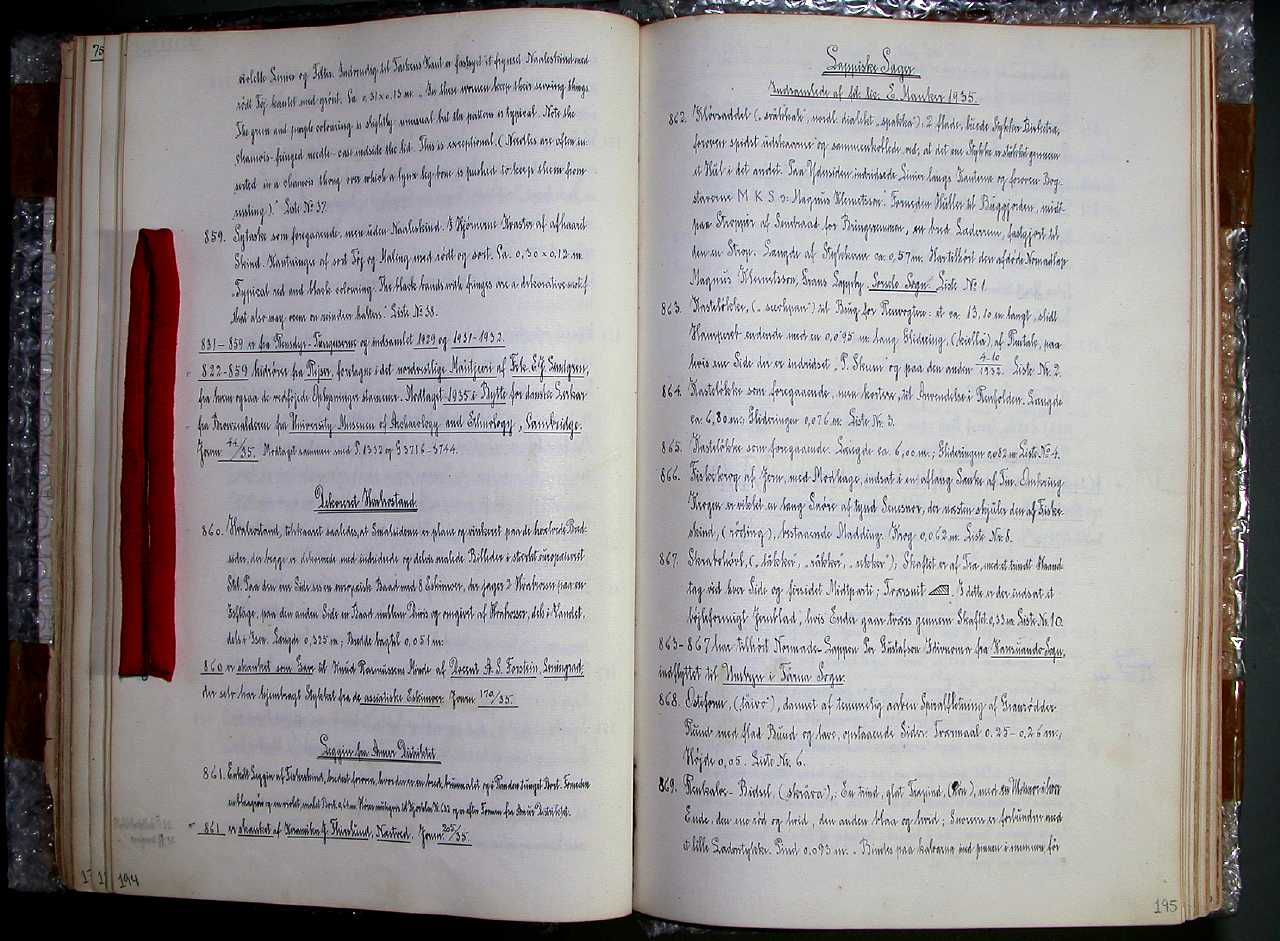 75
violette Linier og Felter. Indvendig til Taskens Kant er fastgjort et figured Naaleskind med
rødt Tøj kantet med grønt. Ca. 0.31 x 0.13 m. "In these women keep their sewing things
The green and purple colouring is slightly unusual but the pattern is typical. Note the
chamois-fringed needle-case inside the lid. This is exceptional. (Needles are often in-
serted in a chamois thong over which a lynx leg-bone is pushed to keep them from
rusting)." Liste Nº 37.
859. Sytaske som foregaaende, men uden Naaleskind. I Hjørnerne Kvaster af afhaaret
Skind. Kantninger af sort Tøj og Maling med rødt og sort. Ca. 0,30 x 0,12 m.
"Typical red and black colouring. The black bands with fringes are a decorative motif
that also may occur on reindeer halters." Liste Nº 38.
831-859 er fra Rensdyr-Tunguserne og indsamlet 1929 og 1931-1932.
822-859 hidrører fra Rejser, foretagne i det nordvestlige Mantjeuri af Frk. E.J. Lindgren,
fra hvem ogsaa de vedføjede Oplysninger stammer. Modtaget 1935 i Bytte for danske Sager
fra University Museum of Archaeology and Ethnology, Cambridge.
Journ. 44/35. Modtaget sammen med P.1332 og G 3716-3744.
Dekoreret Hvalrostand
860. Hvalrostand, tilskaaret saaledes, at Smalsiderne er plane og vinkelret paa de hvælvede Bred-
sider, der begge er dekorerede med indridsede og delvis malede Billeder i stærkt europæiseret
Stil. Paa den ene Side ses en europæisk Baad med 8 Eskimoer, der jager 2 Hvalrosser paa en
Isflage, paa den anden Side en Baad mellem Isen og omgivet af Hvalrosser, dels i Vandet,
dels i Isen. Længde 0,325 m; Bredde bagtil 0,051 m.
860 er skænket som Gave til Knud Rasmussens Minde af Docent A. S. Forstein, Leningrad,
der selv har hjembragt Stykket fra de asiatiske Eskimoer. Journ. 170/35.
Leggin fra Amur Distriktet
861. Enkelt Leggin af Fiskeskind, bredest foroven, hvor der er en bred, brunmalet og i Randen tunget Bort. Forneden
en blaagrøn og en violet, malet Bort. 
861 er skænket af Kammerherre Thorlund, Næstved. Journ. 205/35.
194
Lappiske Sager
Indsamlede af fil. lic. E. Manker 1935.
862. Kløvsaddel ("svakkek", nordl. dialekt "spakka"). 2 flade, buede Stykker Birketræ,
foroven spidst udskaarne og sammenkoblede ved, at det ene Stykke er stukket gennem
et Hul i det andet. Paa Ydersiden indridsede Linier langs Kanterne og foroven Bog-
staverne M K S ɔ: Magnus Klemetsson. Forneden Huller til Buggjorden, midt
paa Stropper af Senetraad for Bringeremmen, en bred Læderrem, fastgjort til
den en Strop. Længde af Stykkerne ca. 0,57 m. Har tilhørt den afdøde Nomadlap
Magnus Klemetsson, Grans Lappby. Sorsele Sogn. Liste Nº 1.
863. Kasteløkke, ("suohpan") til Brug for Renvogtere: et ca. 13,10 m langt, slidt
Hampereb endende med en 0,095 m lang Glidering, (killa) af Rentak, paa
hvis ene Side der er indridset "P. Skum" og paa den anden 4-10/1932. Liste Nr. 2.
864. Kasteløkke som foregaaende, men kortere, til Anvendelse i Renfolden. Længde
ca. 6,80 m; Glideringen 0,076 m. Liste Nr. 3.
865. Kasteløkke som foregaaende. Længde ca. 6,00 m; Glideringen 0,082 m. Liste Nº 4.
866. Fiskekrog af Jern, med Modhage, indsat i en aflang Sænke af Tin. Omkring
Krogen er viklet en lang Snøre af tynd Senesnor, der næsten skjuler den af Fiske-
skind, bestaaende Madding. Krog 0,062 m. Liste Nr. 8.
867. Skrabekort, Skaftet er af Træ, med et rundt Haand-
tag ved hver Side og firsidet Midtparti; Tværsnit . I dette er der indsat et
bøjleformigt Jernblad, hvis Ender gaar tværs gennem Skaftet. 0,33 m. Liste Nr. 10.
863-867 har tilhørt Nomade-Lappen Per Gustafson Idivuoma fra Karesuando Sogn,
indflyttet til Umbyn i Tärna Sogn.
868. Osteform, (tåivo), dannet af temmelig aaben Spiralfletning af Granrødder.
Rund med flad Bund og lave, opstaaende Sider. Tværmaal 0,25-0,26 m;
Højde 0,05. Liste Nr. 6.
869. Renkalve-Bidsel, (skråva). En rund, glat Træpind, med en Uldsnor i hver
Ende, den ene rød og hvid, den anden blaa og hvid; Snorene er forbundne med
et lille Læderstykke. Pind 0,093 m. "Bindes paa kalvarna med pinnen i munnen för
195